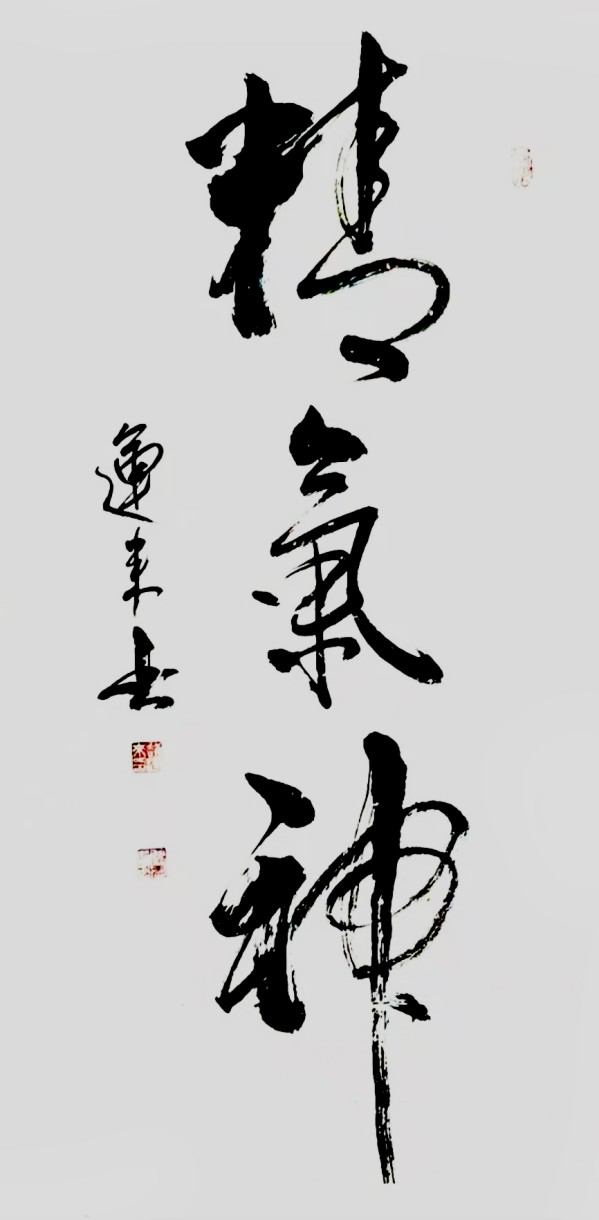 精氣神
運来書